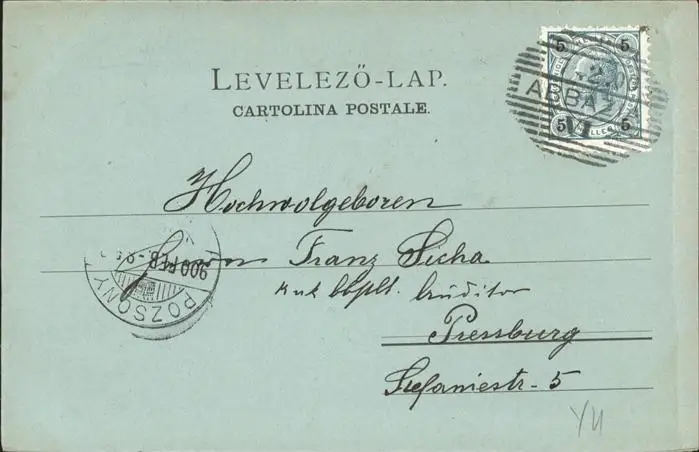 LEVELEZŐ-LAP.
CARTOLINA POSTALE.
5 5
ABBAZIA
5 HELLER 5
Hochwolgeboren
Herrn Franz Sicha
kuk Auditor
Pressburg
Stefaniestr. 5
POZSONY
900 FEB